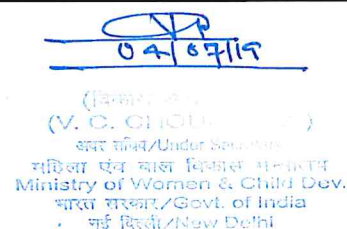 04/07/19
(V. C.
अवर सचिव/Under
महिला एवं बाल विकास मन्त्रालय
Ministry of Women & Child Dev.
भारत सरकार/Govt. of India
नई दिल्ली/New Delhi